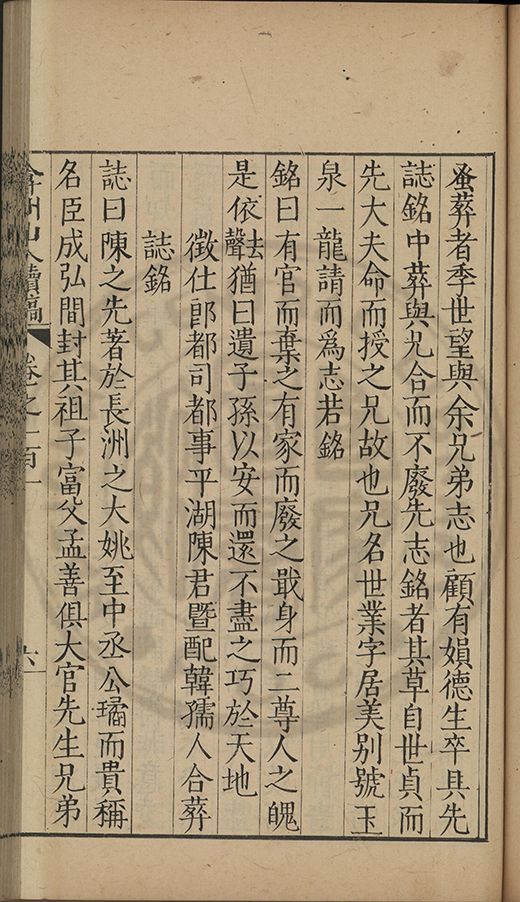 蚤葬者季世望與余兄弟志也顧有娟德生卒具先
誌銘中葬與兄合而不廢先志銘者其草自世貞而
先大夫命而授之兄故也兄名世業字居美别號玉
泉一龍請而爲志若銘
銘曰有官而棄之有家而廢之戢身而二尊人之魄
是依去聲猶曰遺子孫以安而還不盡之巧於天地
徵仕郎都司都事平湖陳君暨配韓孺人合葬
誌銘
誌曰陳之先著於長洲之大姚至中丞公璚而貴稱
名臣成弘間封其祖子富父孟善俱大官先生兄弟
弇州山人續稿 卷之一百一 六